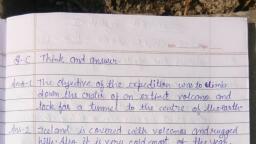 Q-C Think and answer.
Ans-1 The objective of the expedition was to climb
down the crater of an extinct volcano and
look for a tunnel to the centre of the earth
Ans-2 Iceland is covered with volcano and rugged
hills. Also it is very cold most of the year.